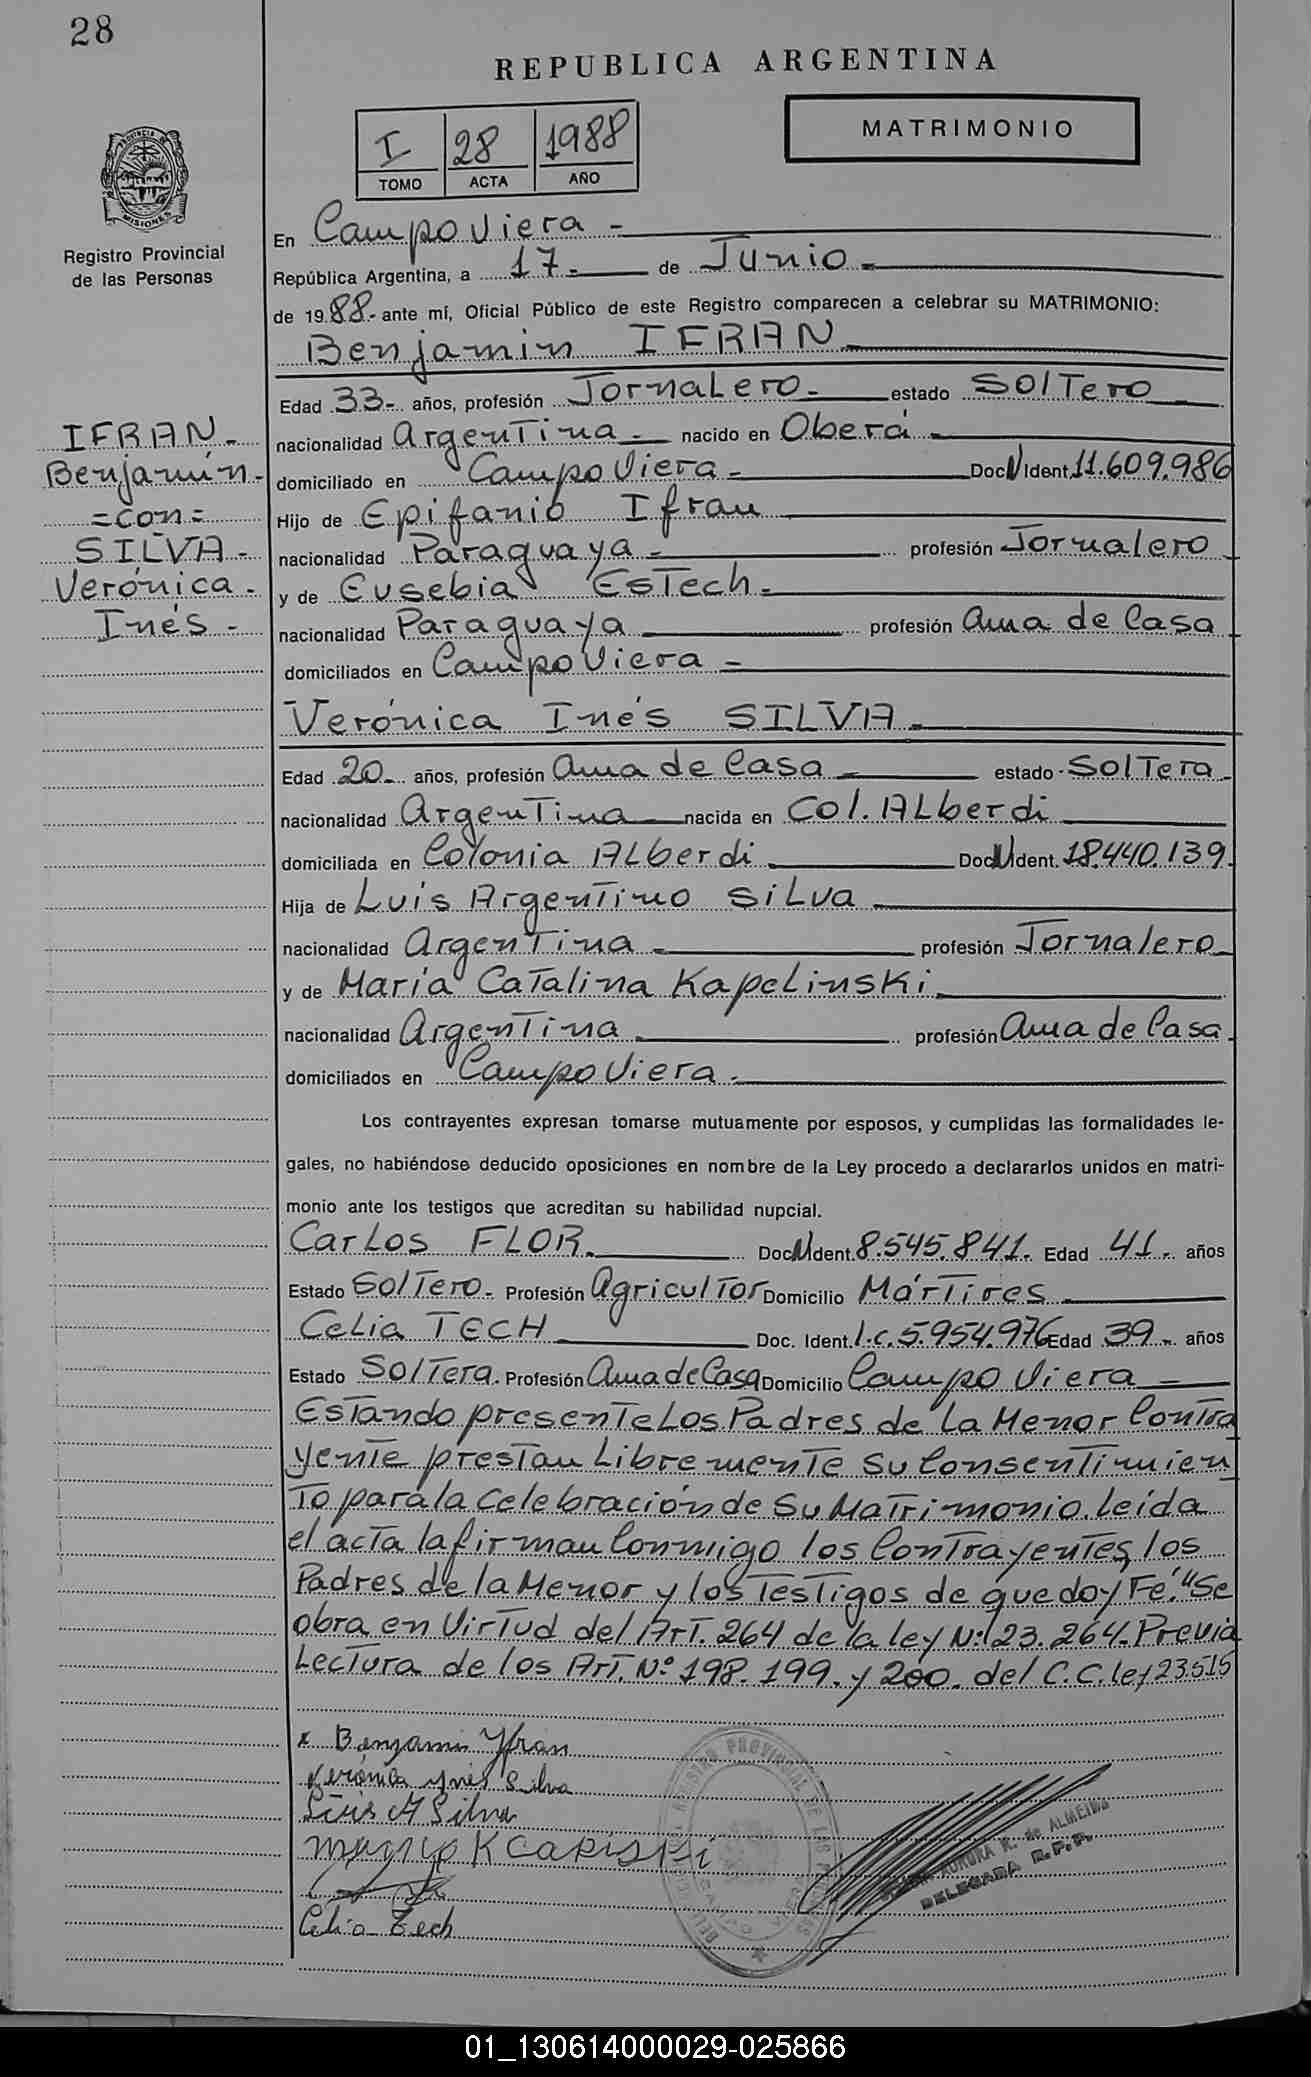 28
REPUBLICA ARGENTINA
MATRIMONIO
I 28 1988
TOMO ACTA AÑO
PROVINCIA DE
MISIONES
Registro Provincial
de las Personas
IFRAN -
Benjamín -
= con =
SILVA -
Verónica -
Inés -
En Campo Viera -
República Argentina, a 17 - de Junio -
de 1988 - ante mí, Oficial Público de este Registro comparecen a celebrar su MATRIMONIO:
Benjamin IFRAN
Edad 33 - años, profesión Jornalero - estado Soltero
nacionalidad Argentina - nacido en Oberá -
domiciliado en Campo Viera - Doc N Ident. 11.609.986
Hijo de Epifanio Ifran
nacionalidad Paraguaya - profesión Jornalero
y de Eusebia Estech -
nacionalidad Paraguaya profesión Ama de Casa
domiciliados en Campo Viera -
Verónica Inés SILVA -
Edad 20 - años, profesión Ama de Casa - estado Soltera -
nacionalidad Argentina nacida en Col. Alberdi
domiciliada en Colonia Alberdi Doc N Ident. 18.440.139.
Hija de Luis Argentino Silva
nacionalidad Argentina - profesión Jornalero
y de María Catalina Kapelinski
nacionalidad Argentina - profesión Ama de Casa
domiciliados en Campo Viera -
Los contrayentes expresan tomarse mutuamente por esposos, y cumplidas las formalidades le-
gales, no habiéndose deducido oposiciones en nombre de la Ley procedo a declararlos unidos en matri-
monio ante los testigos que acreditan su habilidad nupcial.
Carlos FLOR. Doc N Ident. 8.545.841. Edad 41 - años
Estado Soltero - Profesión Agricultor Domicilio Mártires
Celia TECH Doc. Ident. l.c. 5.954.976 Edad 39 - años
Estado Soltera. Profesión Ama de Casa Domicilio Campo Viera -
Estando presente Los Padres de La Menor Contra
yente prestan Libremente su Consentimien
to para la Celebración de su Matrimonio. Leída
el acta la firman Conmigo los Contrayentes, los
Padres de la Menor y los Testigos de que doy Fé. "Se
obra en Virtud del Art. 264 de la ley N: 23.264. Previa
Lectura de los Art. Nº 198. 199. y 200. del C.C. ley 23.515
x Benjamin Yfran
Verónica Ynés Silva
Luis A Silva
Celia Tech
REGISTRO PROVINCIAL DE LAS PERSONAS
AURORA R. de ALMEIDA
DELEGADA R.P.P.
01_130614000029-025866